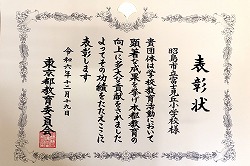 表彰状
昭島市立富士見丘小学校様
貴団体は学校教育活動において
顕著な成果を挙げ本都教育の
向上に多大な貢献をされました
よってその功績をたたえここに
表彰します
令和六年十二月十九日
東京都教育委員会